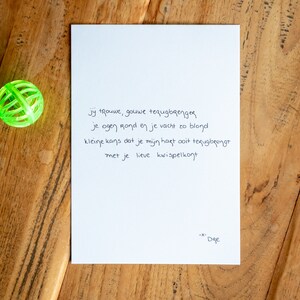 jij trouwe, gouwe terugbrenger
je ogen rond en je vacht zo blond
kleine kans dat je mijn hart ooit terugbrengt
met je lieve kwispelkont